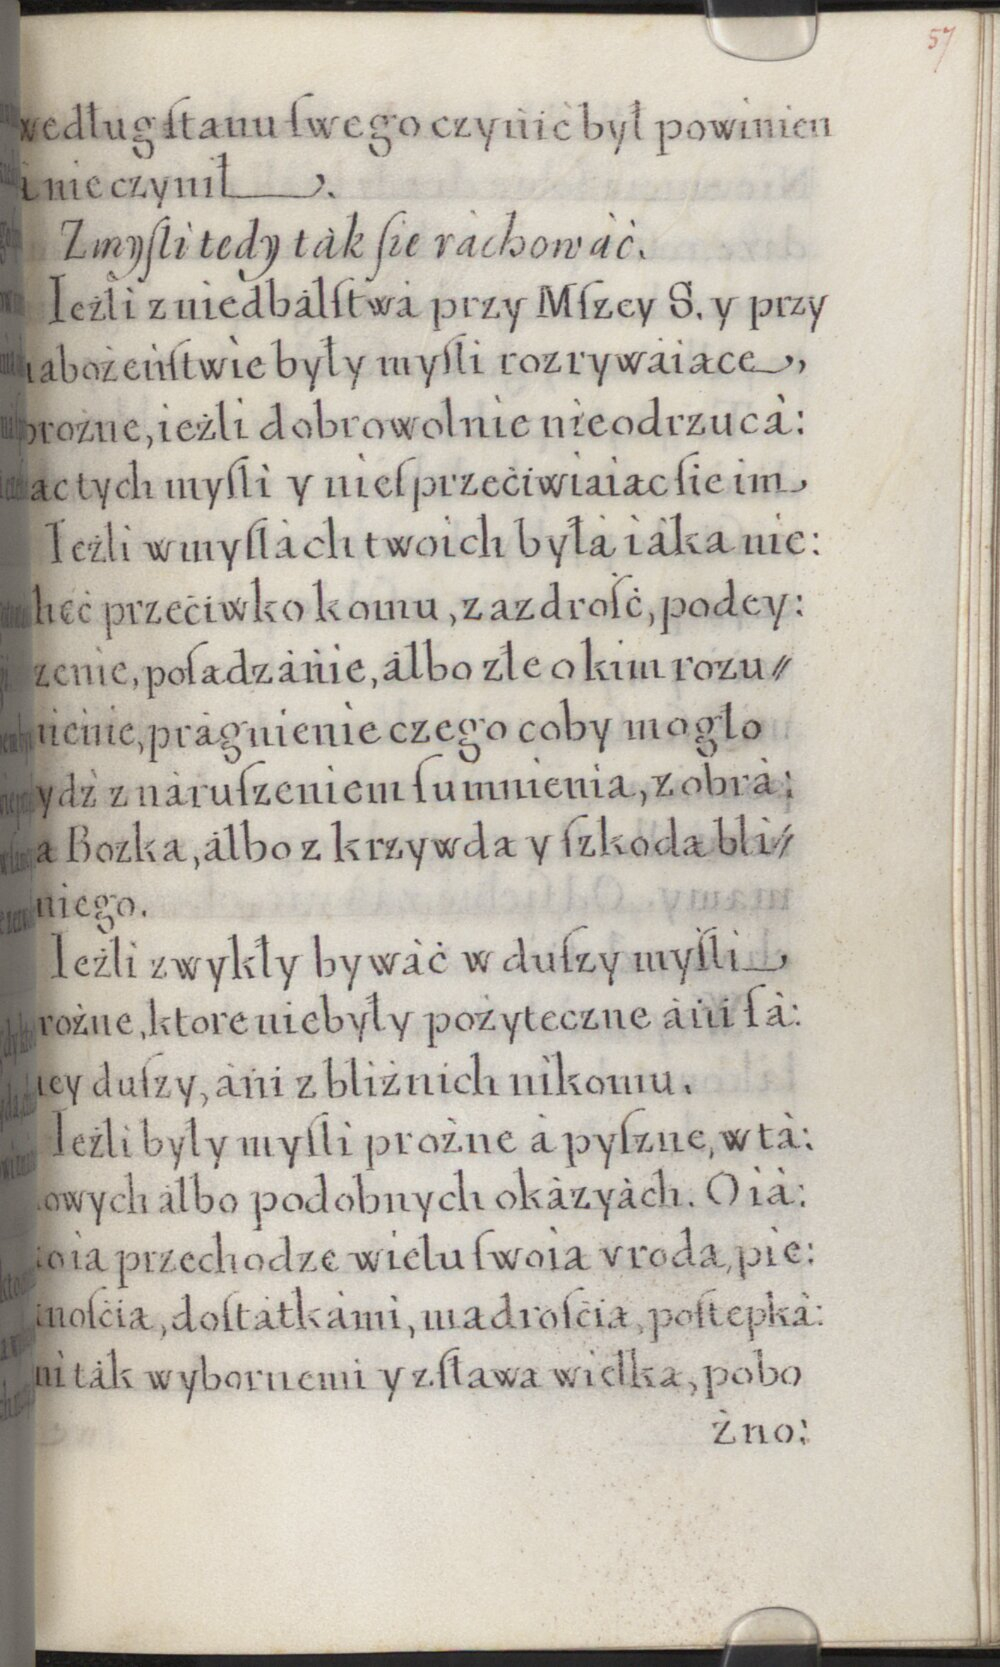 57
według ſtanu ſwego czynić był powinien
i nie czynił.
Zmyſli tedy ták ſie ráchowáć.
Ieżli z niedbálſtwá przy Mſzey S. y przy
nabożeńſtwie były myſli rozrywáiące,
prożne, ieżli dobrowolnie nieodrzucá:
ac tych myſli y nieſprzećiwiaiac ſie im
Ieżli w myſlách twoich byłá iáka nie:
chęć przećiwko komu, zazdrość, podey:
zenie, poſadzánie, álbo złe o kim rozu//
mienie, prágnienie czego coby mogło
ydź z náruſzeniem ſumnienia, z obrá:
a Bozka, álbo z krzywda y ſzkoda bli//
niego.
Ieżli zwykły bywáć w duſzy myſli
rożne, ktore niebyły pożyteczne áni ſá:
iey duſzy, áni z bliżnich nikomu.
Ieżli były myſli prożne á pyſzne, w tá:
owych álbo podobnych okázyách. O iá:
koia przechodze wielu ſwoia vroda, pie:
knoſćia, doſtátkámi, madroſćia, poſtepká:
mi ták wybornemi y z ſława wielka, pobo
żno: